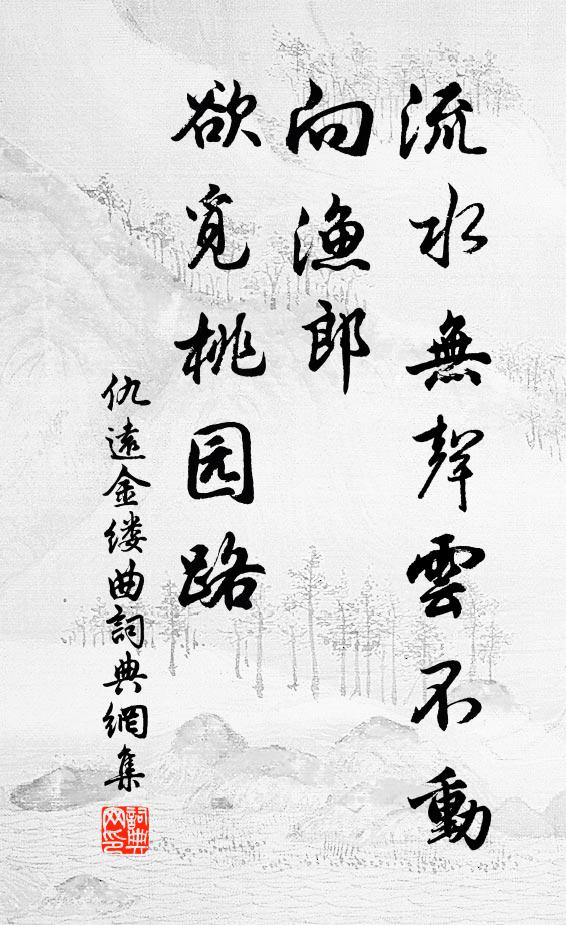 流水無聲雲不動
向漁郎
欲覓桃园路
仇遠金缕曲詞典網集
詞典
网印